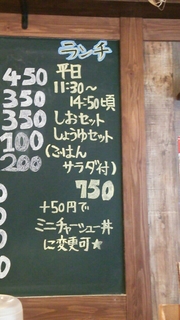 ランチ
450 平日
350 11:30～
14:50頃
350 しおセット
100 しょうゆセット
200 (ごはん
サラダ付)
0 750
0 +50円で
0 ミニチャーシュー丼
に変更可★
0